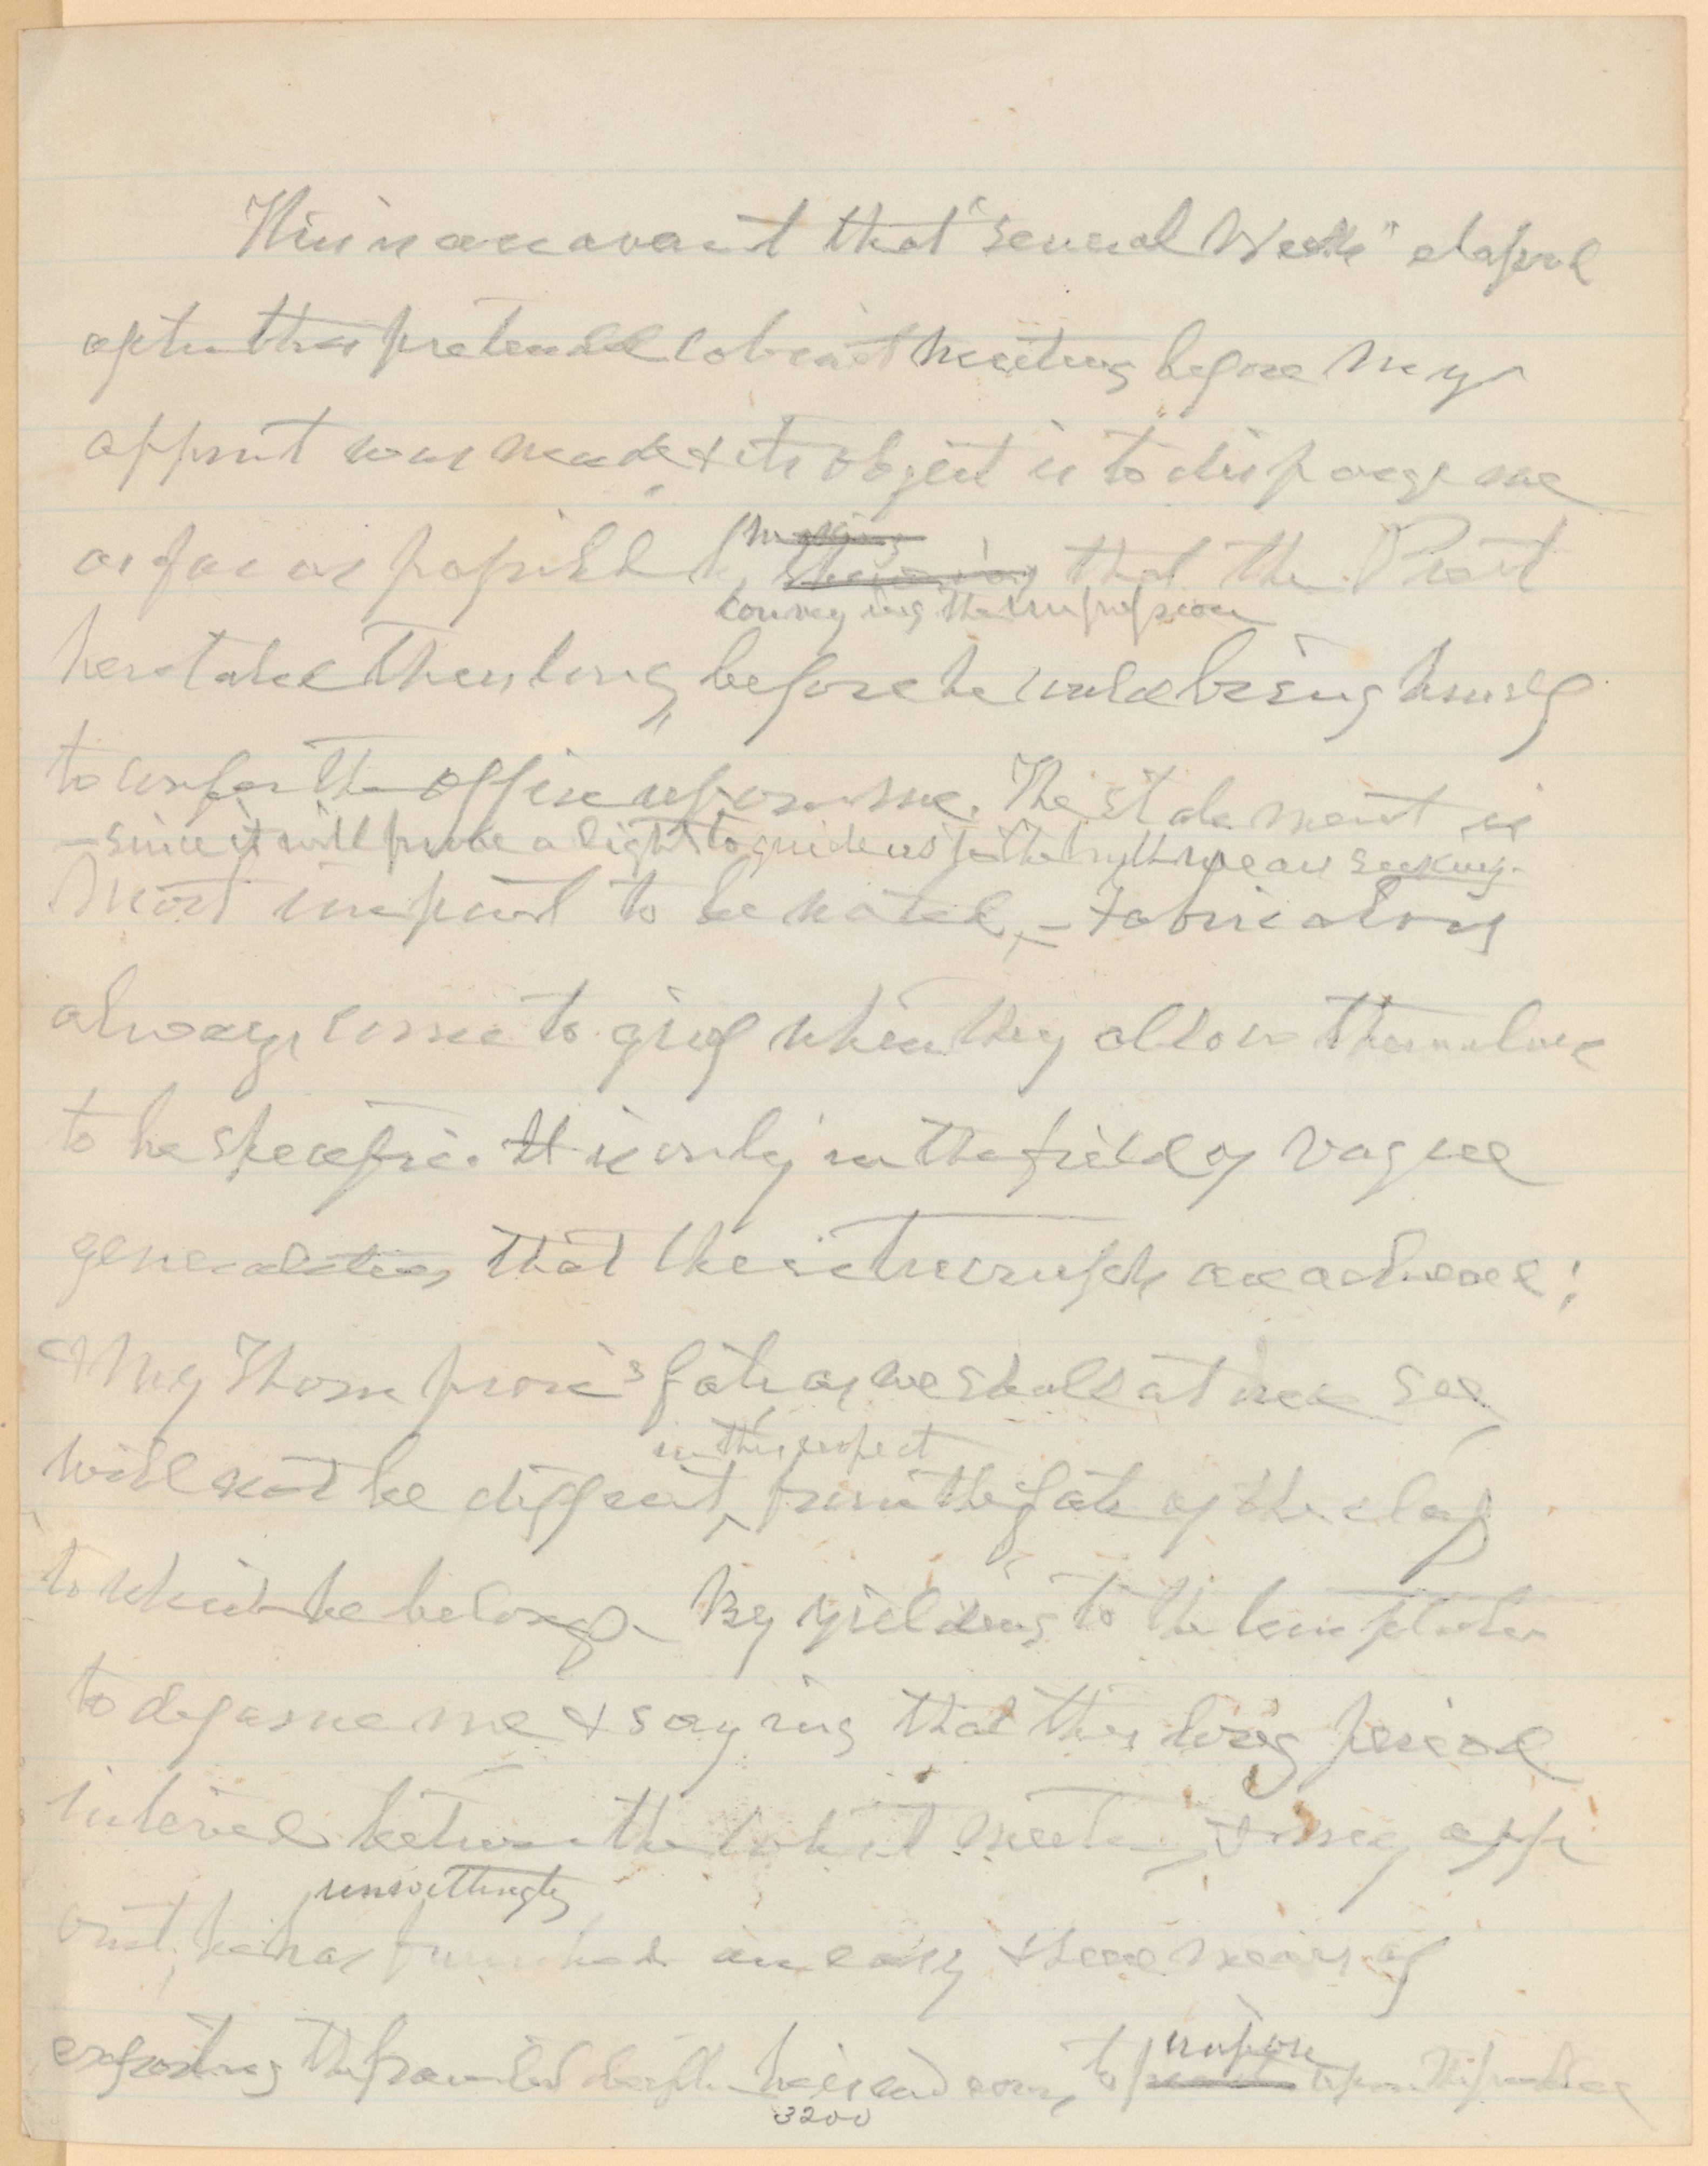 This is an averment that "several Weeks" elapsed
after this pretended Cabinet meeting before my
appmt was made & its object is to disparage me
as far as possible by making showing that the Presdt
conveying the impression
hesitated thus long before he could bring himself
to confer the office upon me. The statement is
– since it will prove a light to guide us to the truth we are seeking.
most import to be noted, – Fabricators
always come to grief when they allow themselves
to be specific. It is only in the field of vague
generalities that their triumphs are achieved;
& Mr Thompson's fate as we shall at once see,
in this respect
will not be different, from the fate of the class
to which he belongs. By yielding to the temptation
to defame me & saying that this long period
intervened between the Cabinet meeting & my app
unwittingly
ont, he has furnished an easy & sure means of
exposing the fraud he is end to impose upon
3200